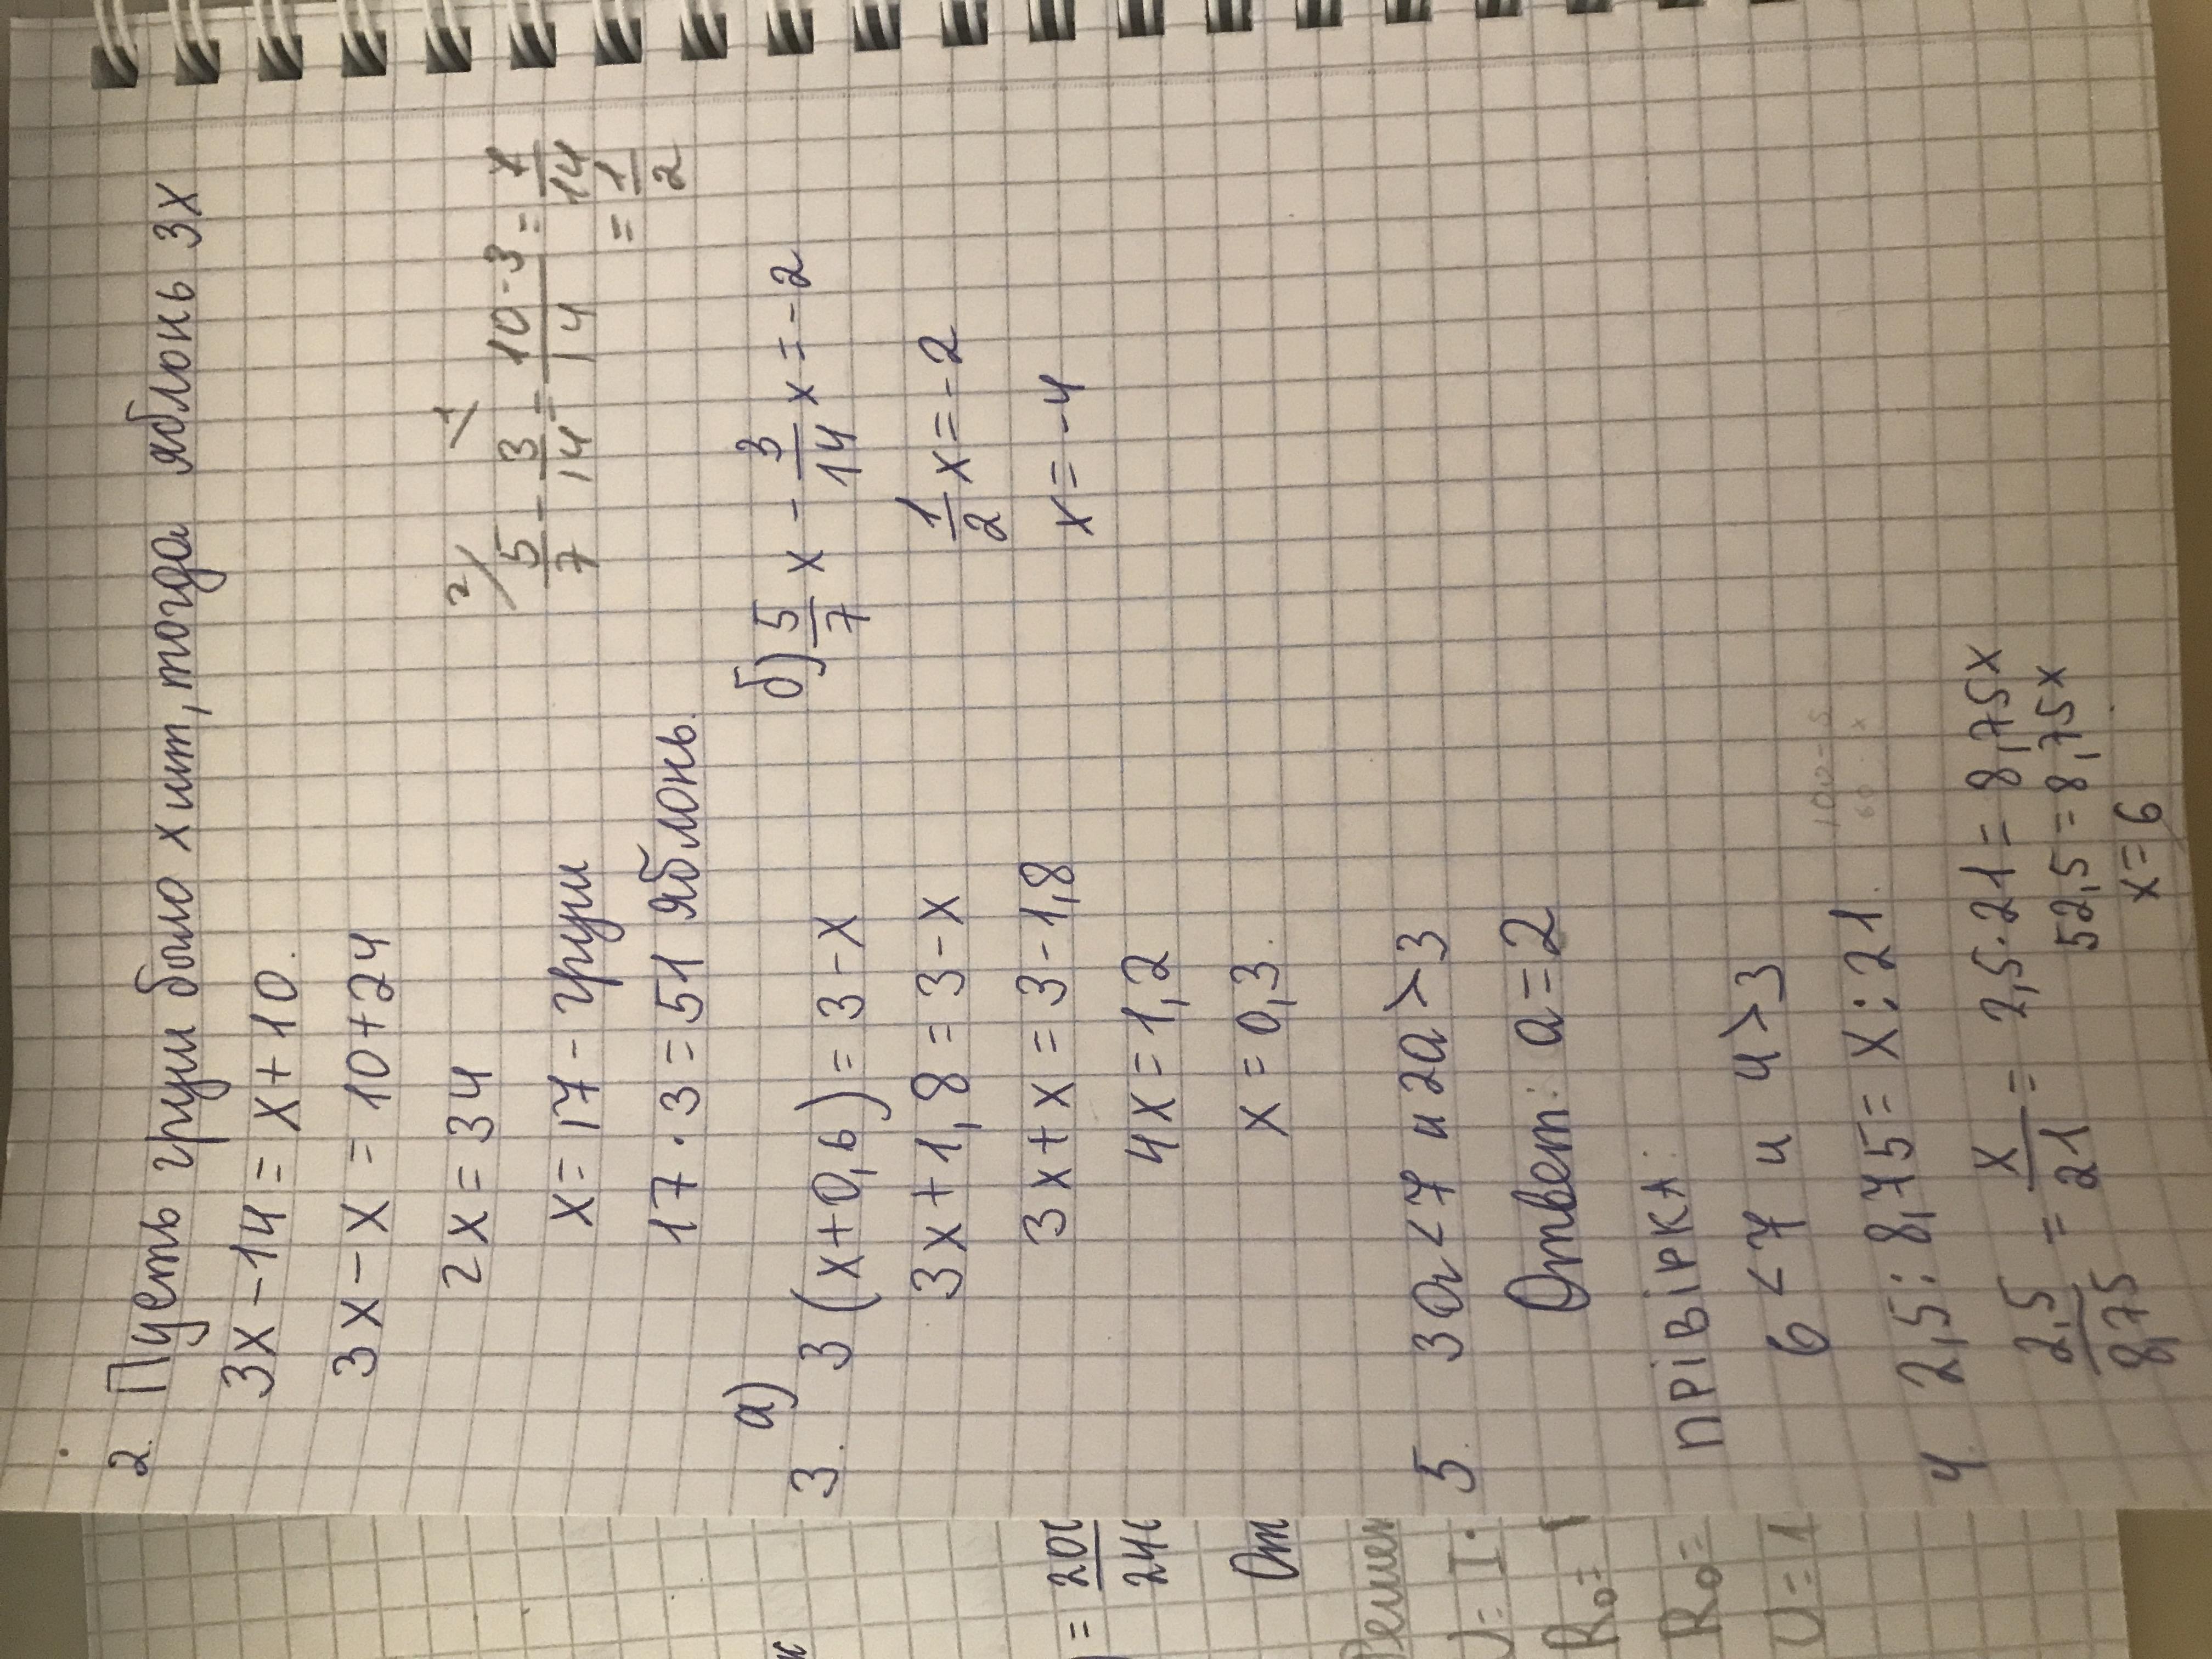 2. Пусть груш было x шт, тогда яблонь 3x
3x-14=x+10.
3x-x=10+24
2x=34
x=17-груш
17·3=51 яблонь.
2/ 1
5/7 - 3/14 = 10-3/14 = 7/14
= 1/2
3. а) 3(x+0,6)=3-x
3x+1,8=3-x
3x+x=3-1,8
4x=1,2
x=0,3.
б) 5/7 x - 3/14 x = -2
1/2 x = -2
x = -4
5. 3a<7 и 2a>3
Ответ: a=2
ПРІВІРКА:
6<7 и 4>3
4. 2,5:8,75=x:21.
2,5/8,75 = x/21 = 2,5·21=8,75x
52,5=8,75x
x=6
= 200
240
От
Решен
U=I·
R₀=
R₀=
U=1